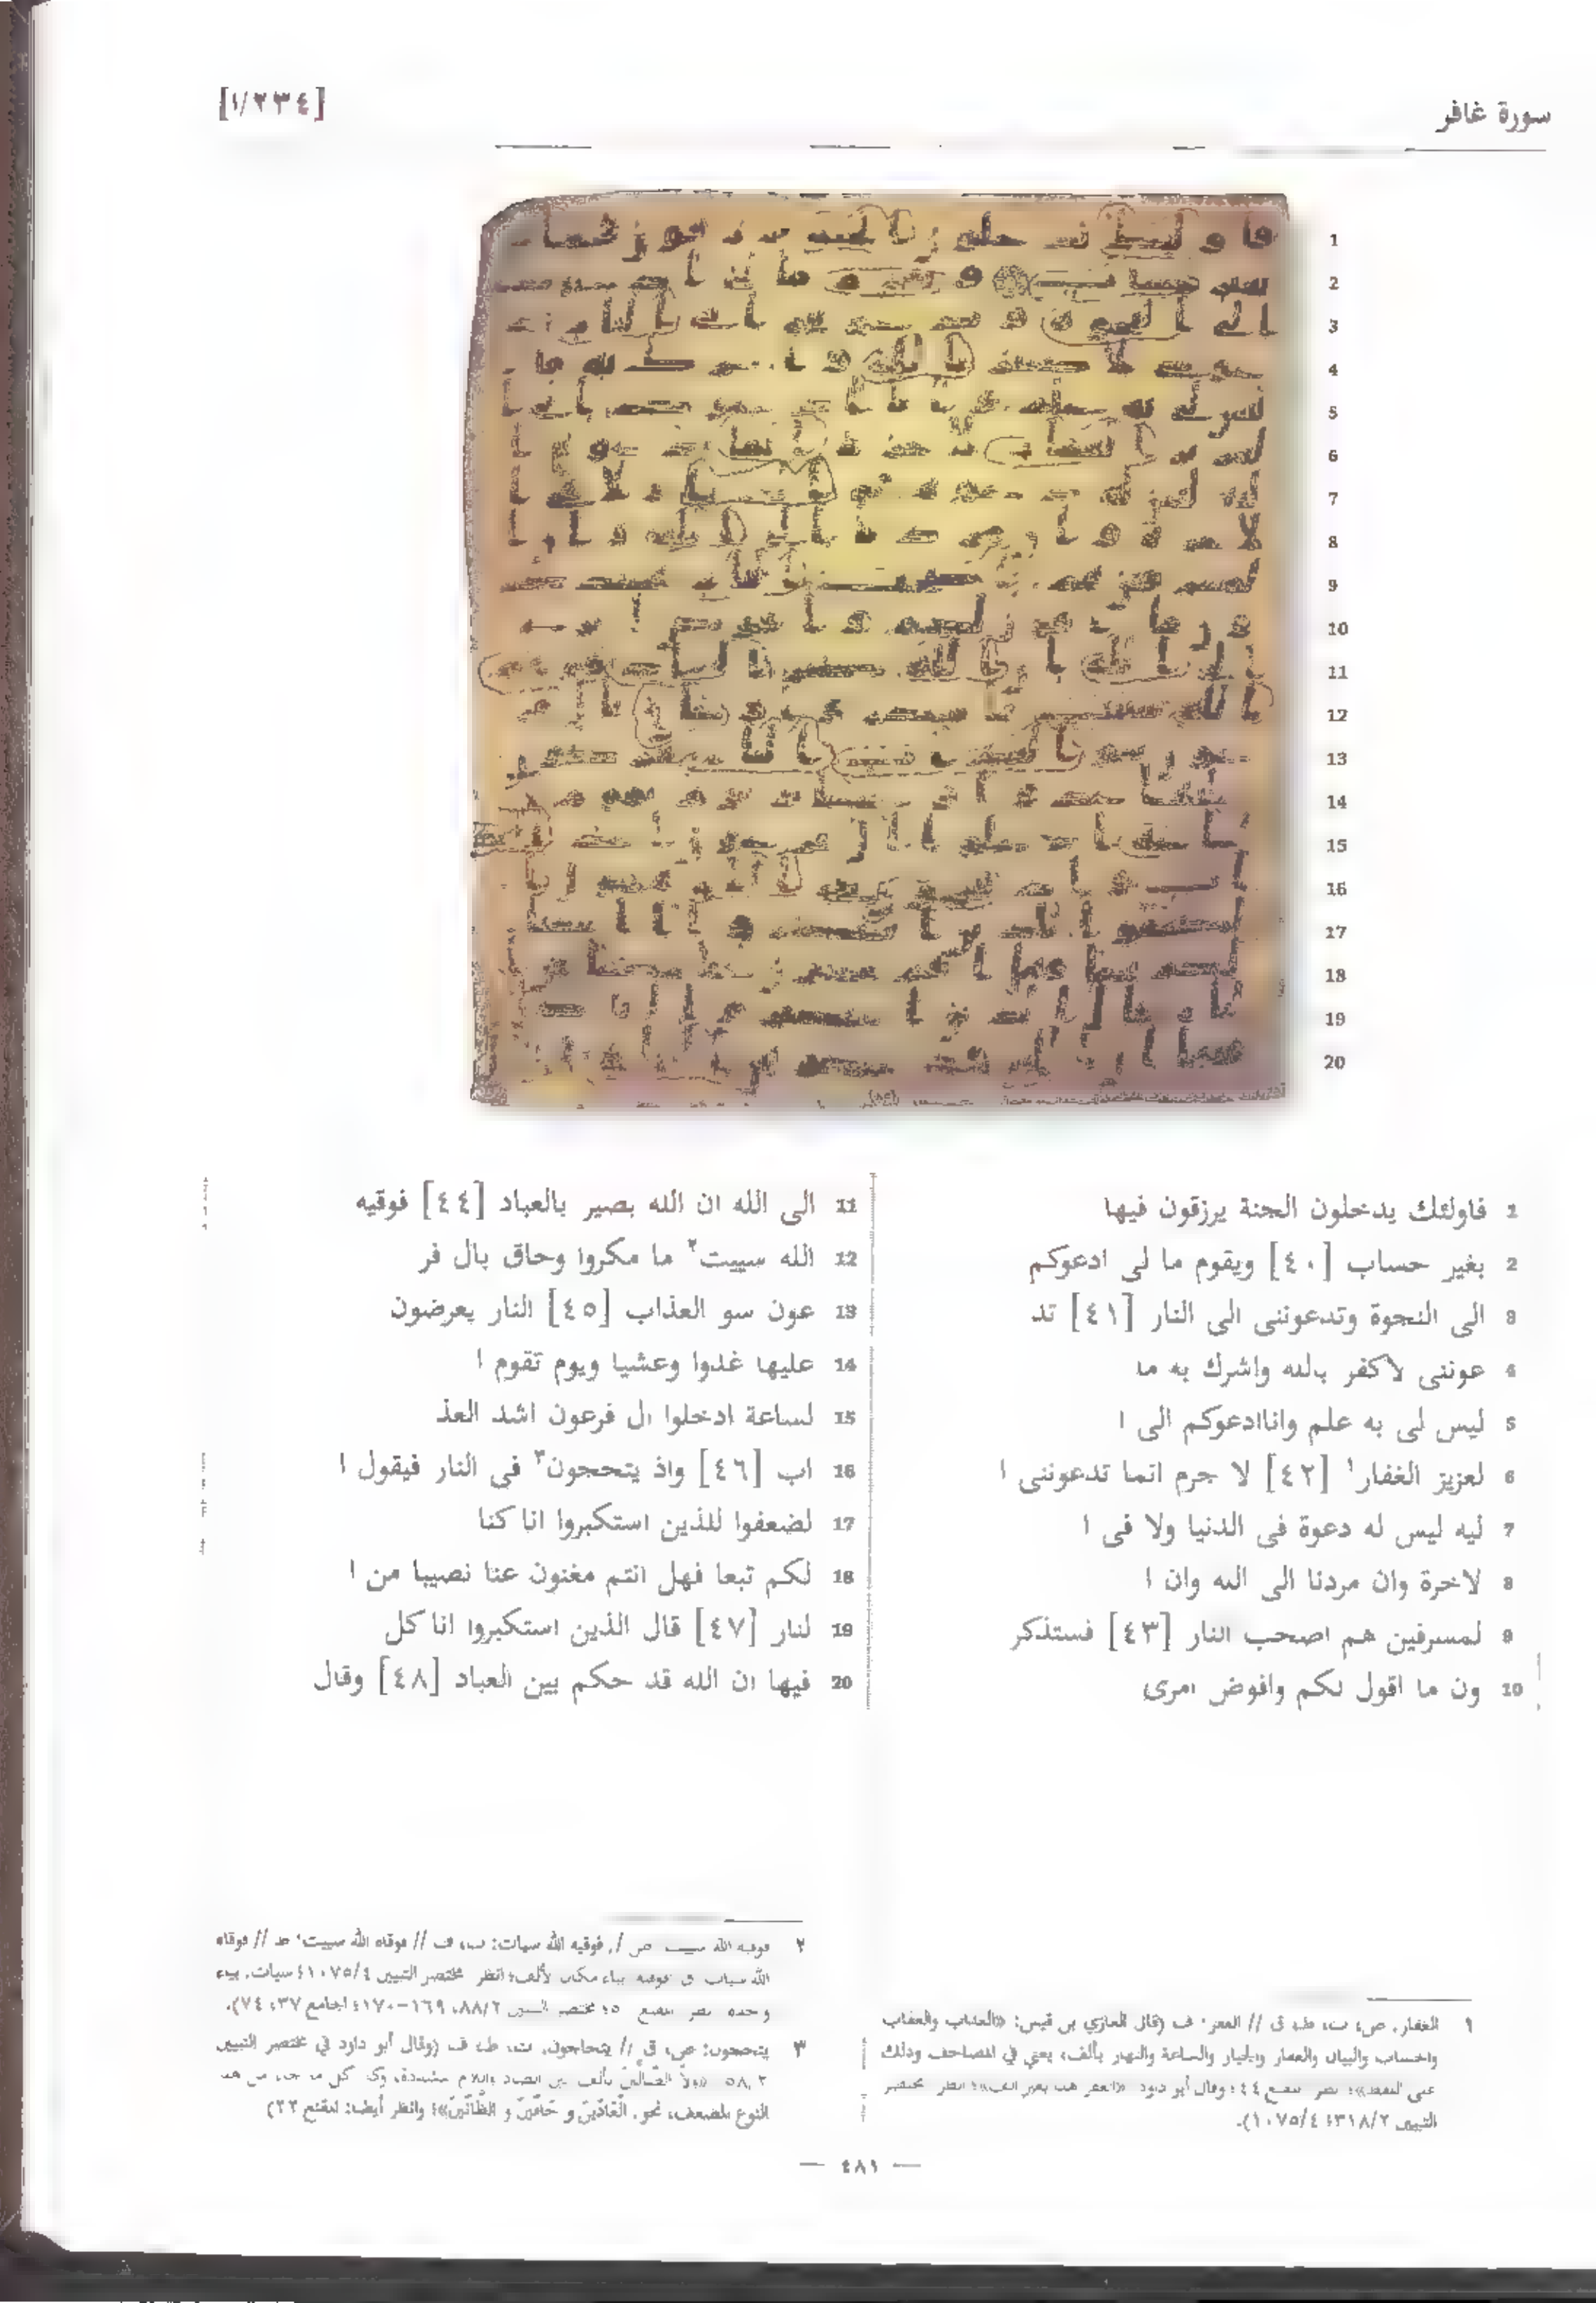 سورة غافر
[١/٢٣٤]
1
2
3
4
5
6
7
8
9
10
11
12
13
14
15
16
17
18
19
20
1 فاولئك يدخلون الجنة يرزقون فيها
2 بغير حساب [٤٠] ويقوم ما لى ادعوكم
3 الى النجوة وتدعوننى الى النار [٤١] تد
4 عوننى لاكفر بالله واشرك به ما
5 ليس لى به علم واناادعوكم الى ا
6 لعزيز الغفار١ [٤٢] لا جرم انما تدعوننى ا
7 ليه ليس له دعوة فى الدنيا ولا فى ا
8 لاخرة وان مردنا الى الله وان ا
9 لمسرفين هم اصحب النار [٤٣] فستذكر
10 ون ما اقول لكم وافوض امرى
11 الى الله ان الله بصير بالعباد [٤٤] فوقيه
12 الله سييت٢ ما مكروا وحاق بال فر
13 عون سو العذاب [٤٥] النار يعرضون
14 عليها غدوا وعشيا ويوم تقوم ا
15 لساعة ادخلوا ال فرعون اشد العذ
16 اب [٤٦] واذ يتحجون٣ فى النار فيقول ا
17 لضعفوا للذين استكبروا انا كنا
18 لكم تبعا فهل انتم مغنون عنا نصيبا من ا
19 لنار [٤٧] قال الذين استكبروا انا كل
20 فيها ان الله قد حكم بين العباد [٤٨] وقال
١ الغفار: ص، ت، ط، ق // الغفر: ف (قال الغازي بن قيس: «العذاب والعقاب
والحساب والبيان والغفار والجبار والساعة والنهار بألف» يعني في المصاحف وذلك
على اللفظ»؛ ٤٤؛ وقال أبو داود انظر مختصر
التبيين ٣١٨/٢؛ ١٠٧٥/٤).
٢ فوقيه الله ص // فوقيه الله سيات: ت، ف // فوقاه الله سييت: ط // فوقاه
الله ق بياء مكان الألف؛ انظر مختصر التبيين ١٠٧٥/٤؛ سيات، بياء
٨٨/٢، ١٦٩-١٧٠؛ الجامع ٣٧، ٧٤).
٣ يتحجون: ص، ق // يتحاجون: ت، ط، ف (وقال أبو داود في مختصر التبيين
٥٨/٢ «ولا الضّالّين بألف بين الضاد واللام كل ما من هذا
النوع المضعف، نحو: الْعَادّينَ و حَافّينَ و الظَّانّينَ»؛ وانظر أيضا: المقنع ٢٢)
— ٤٨١ —